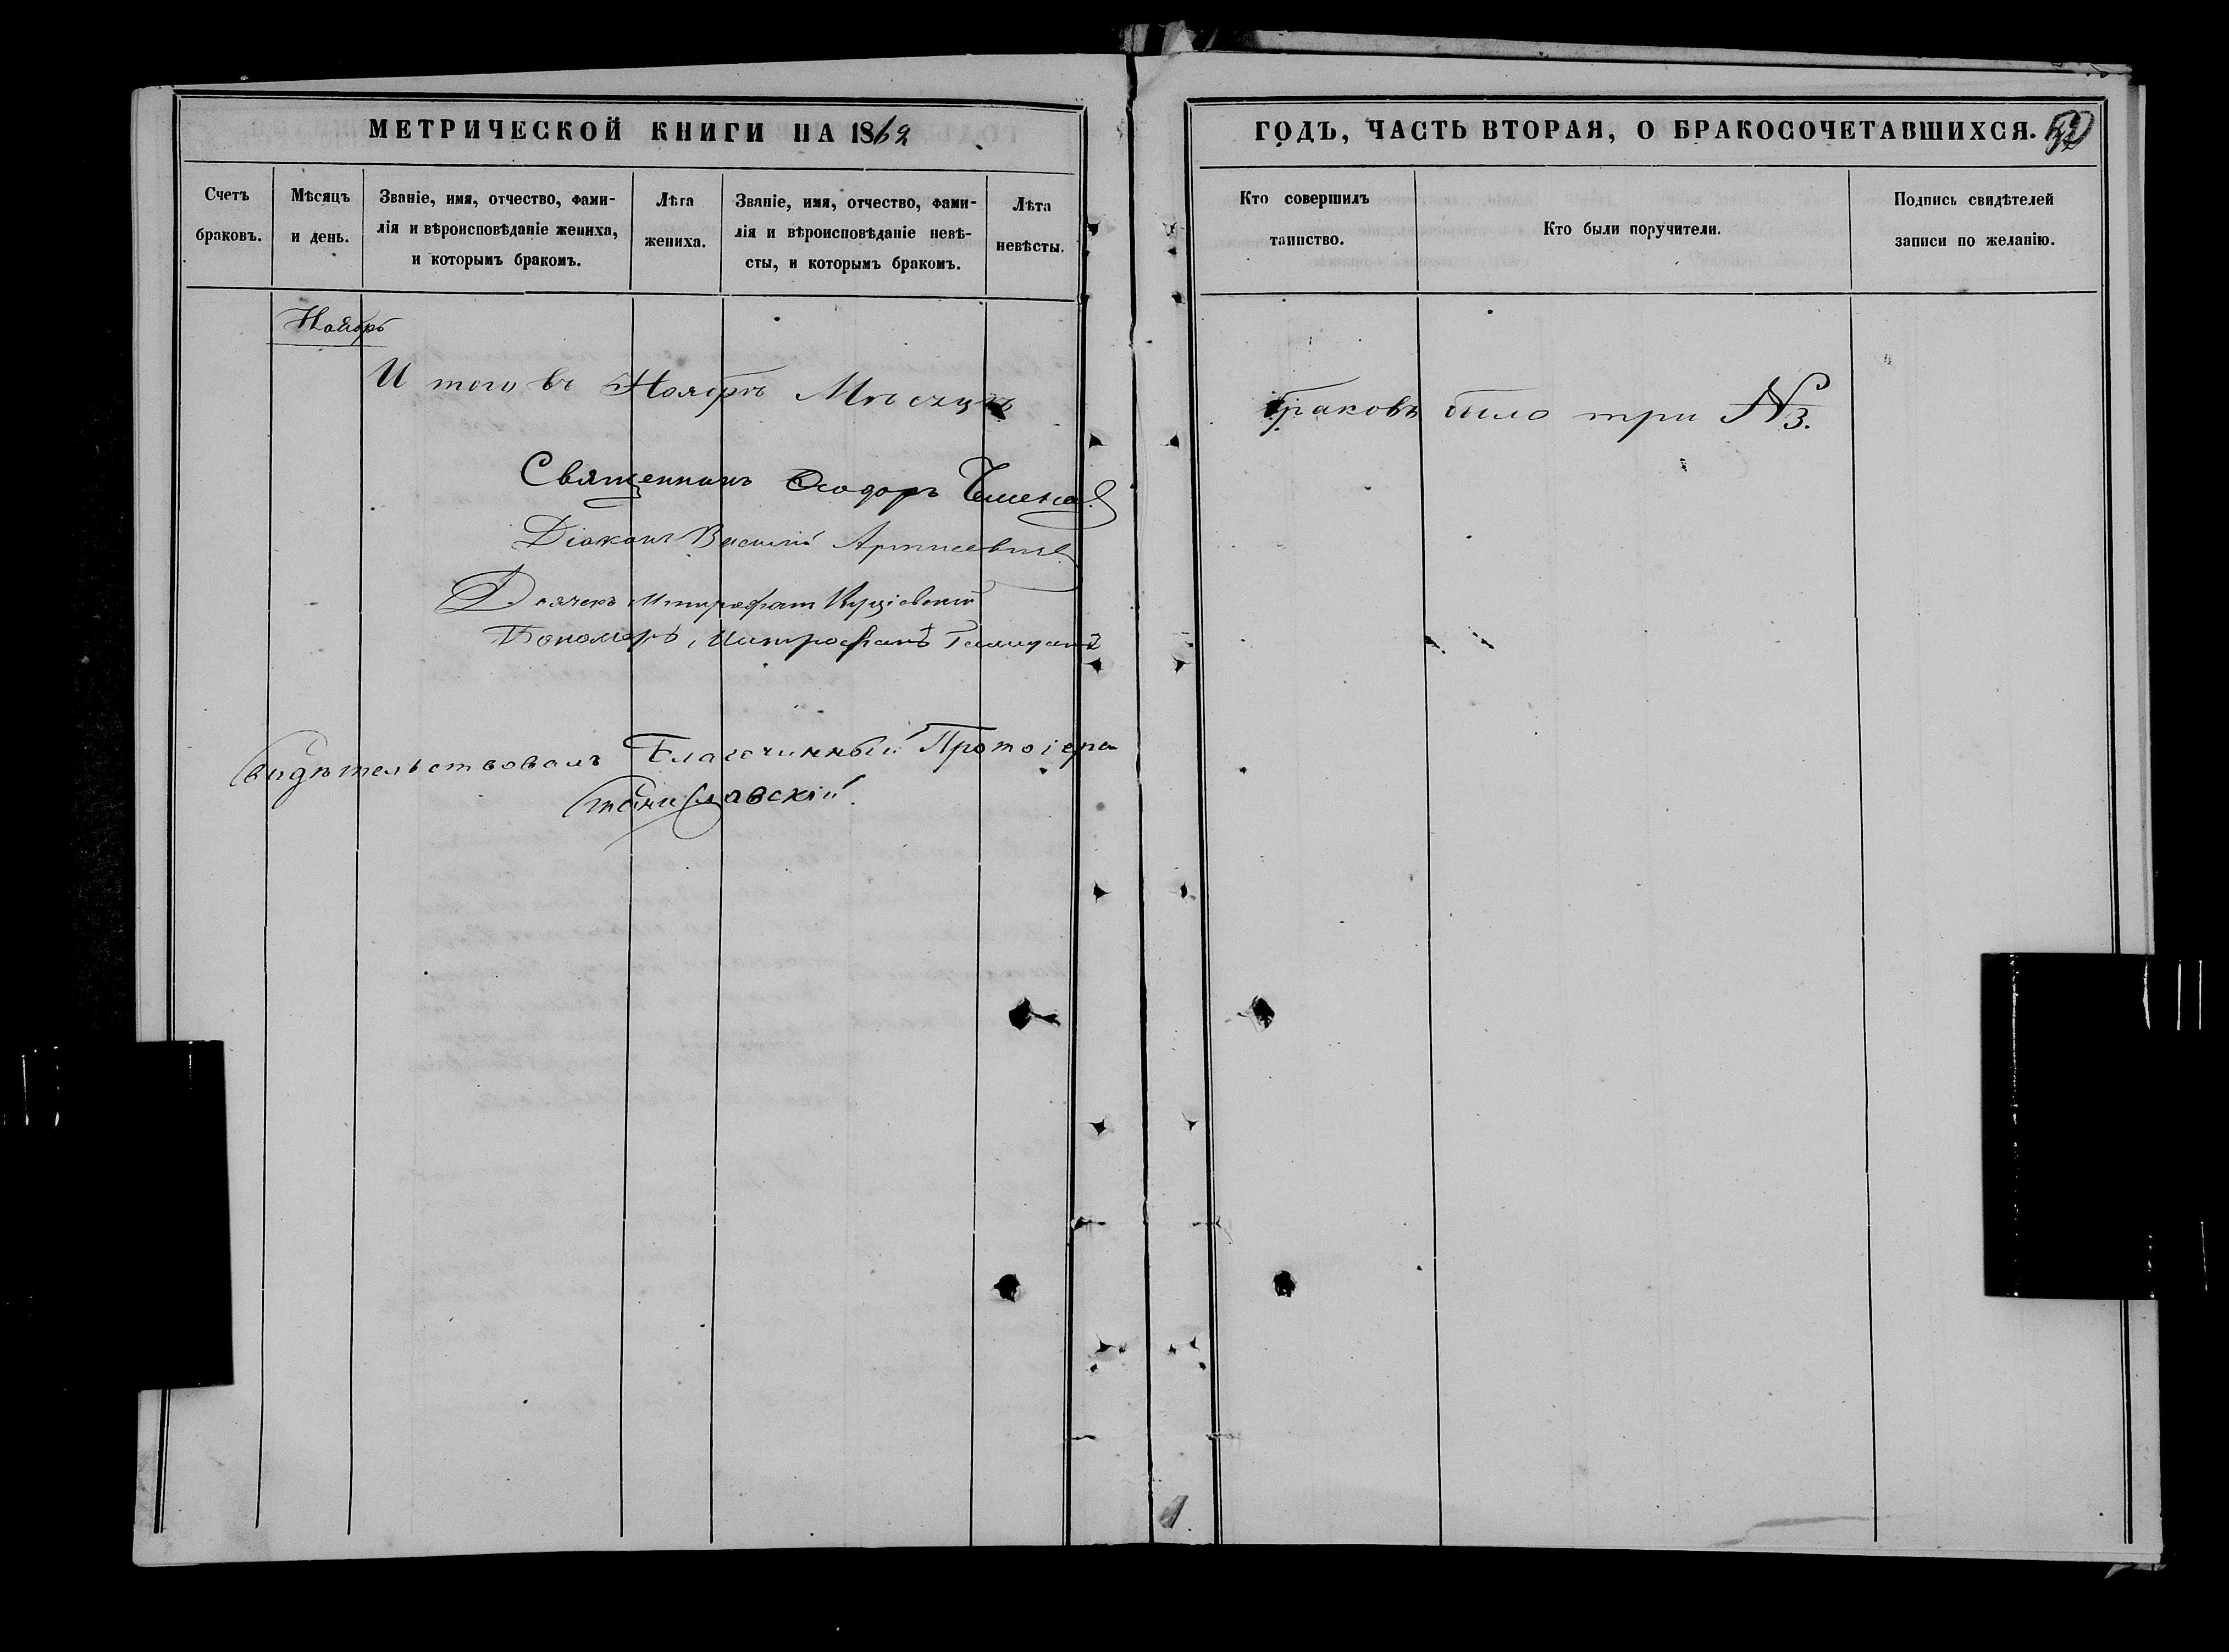 МЕТРИЧЕСКОЙ КНИГИ НА 1862
Счетъ браковъ.
Мѣсяцъ и день.
Званіе, имя, отчество, фами-
лія и вѣроисповѣданіе жениха,
и которымъ бракомъ.
Лѣта жениха.
Званіе, имя, отчество, фами-
лія и вѣроисповѣданіе невѣ-
сты, и которымъ бракомъ.
Лѣта невѣсты.
Ноябрь
Итого въ Ноябрѣ Мѣсяцѣ
Священникъ Ѳеодоръ
Діаконъ Василій
Дьячекъ Митрофанъ
Пономарь Митрофанъ
Свидѣтельствовалъ Благочинный Протоіерей
Станиславскій.
ГОДЪ, ЧАСТЬ ВТОРАЯ, О БРАКОСОЧЕТАВШИХСЯ.
Кто совершилъ
таинство.
Кто были поручители.
Подпись свидѣтелей
записи по желанію.
браковъ было три №3.